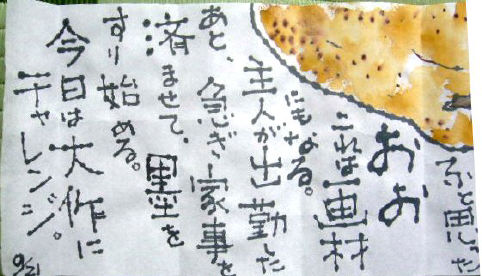 ふと思った
おお
これは画材
にもなる。
主人が出勤した
あと、急ぎ家事を
済ませて、墨を
すり始める。
今日は大作に
チャレンジ。
9/21